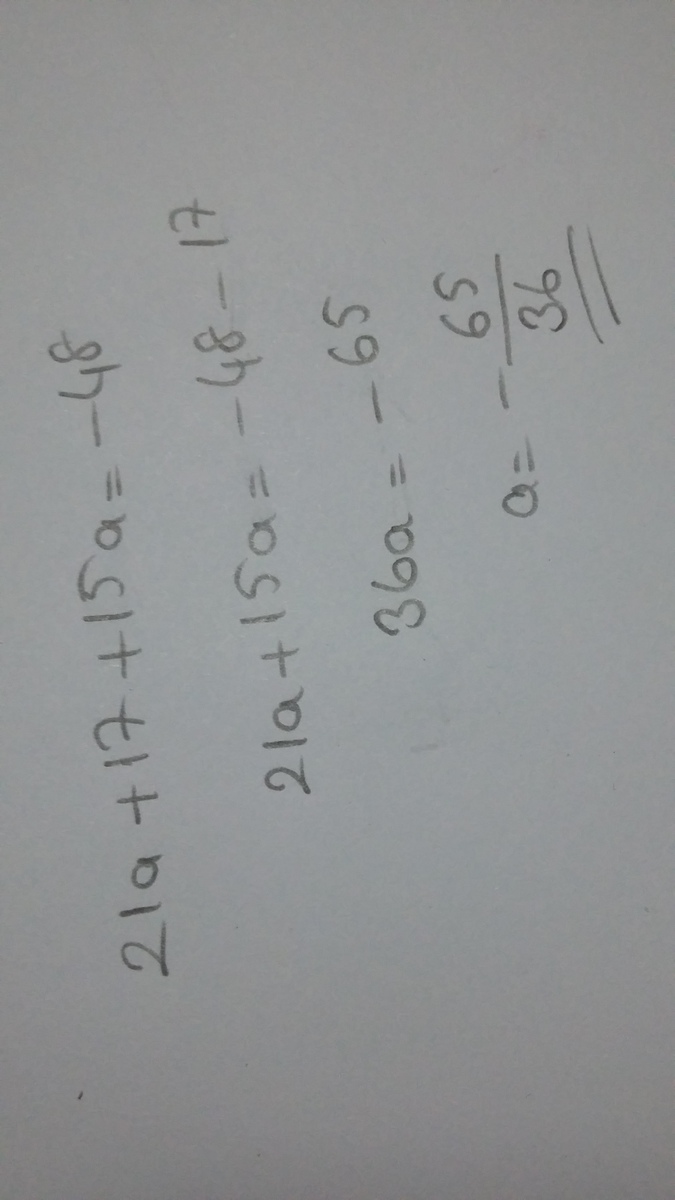 21a + 17 + 15a = -48
21a + 15a = -48 - 17
36a = -65
a = - 65/36